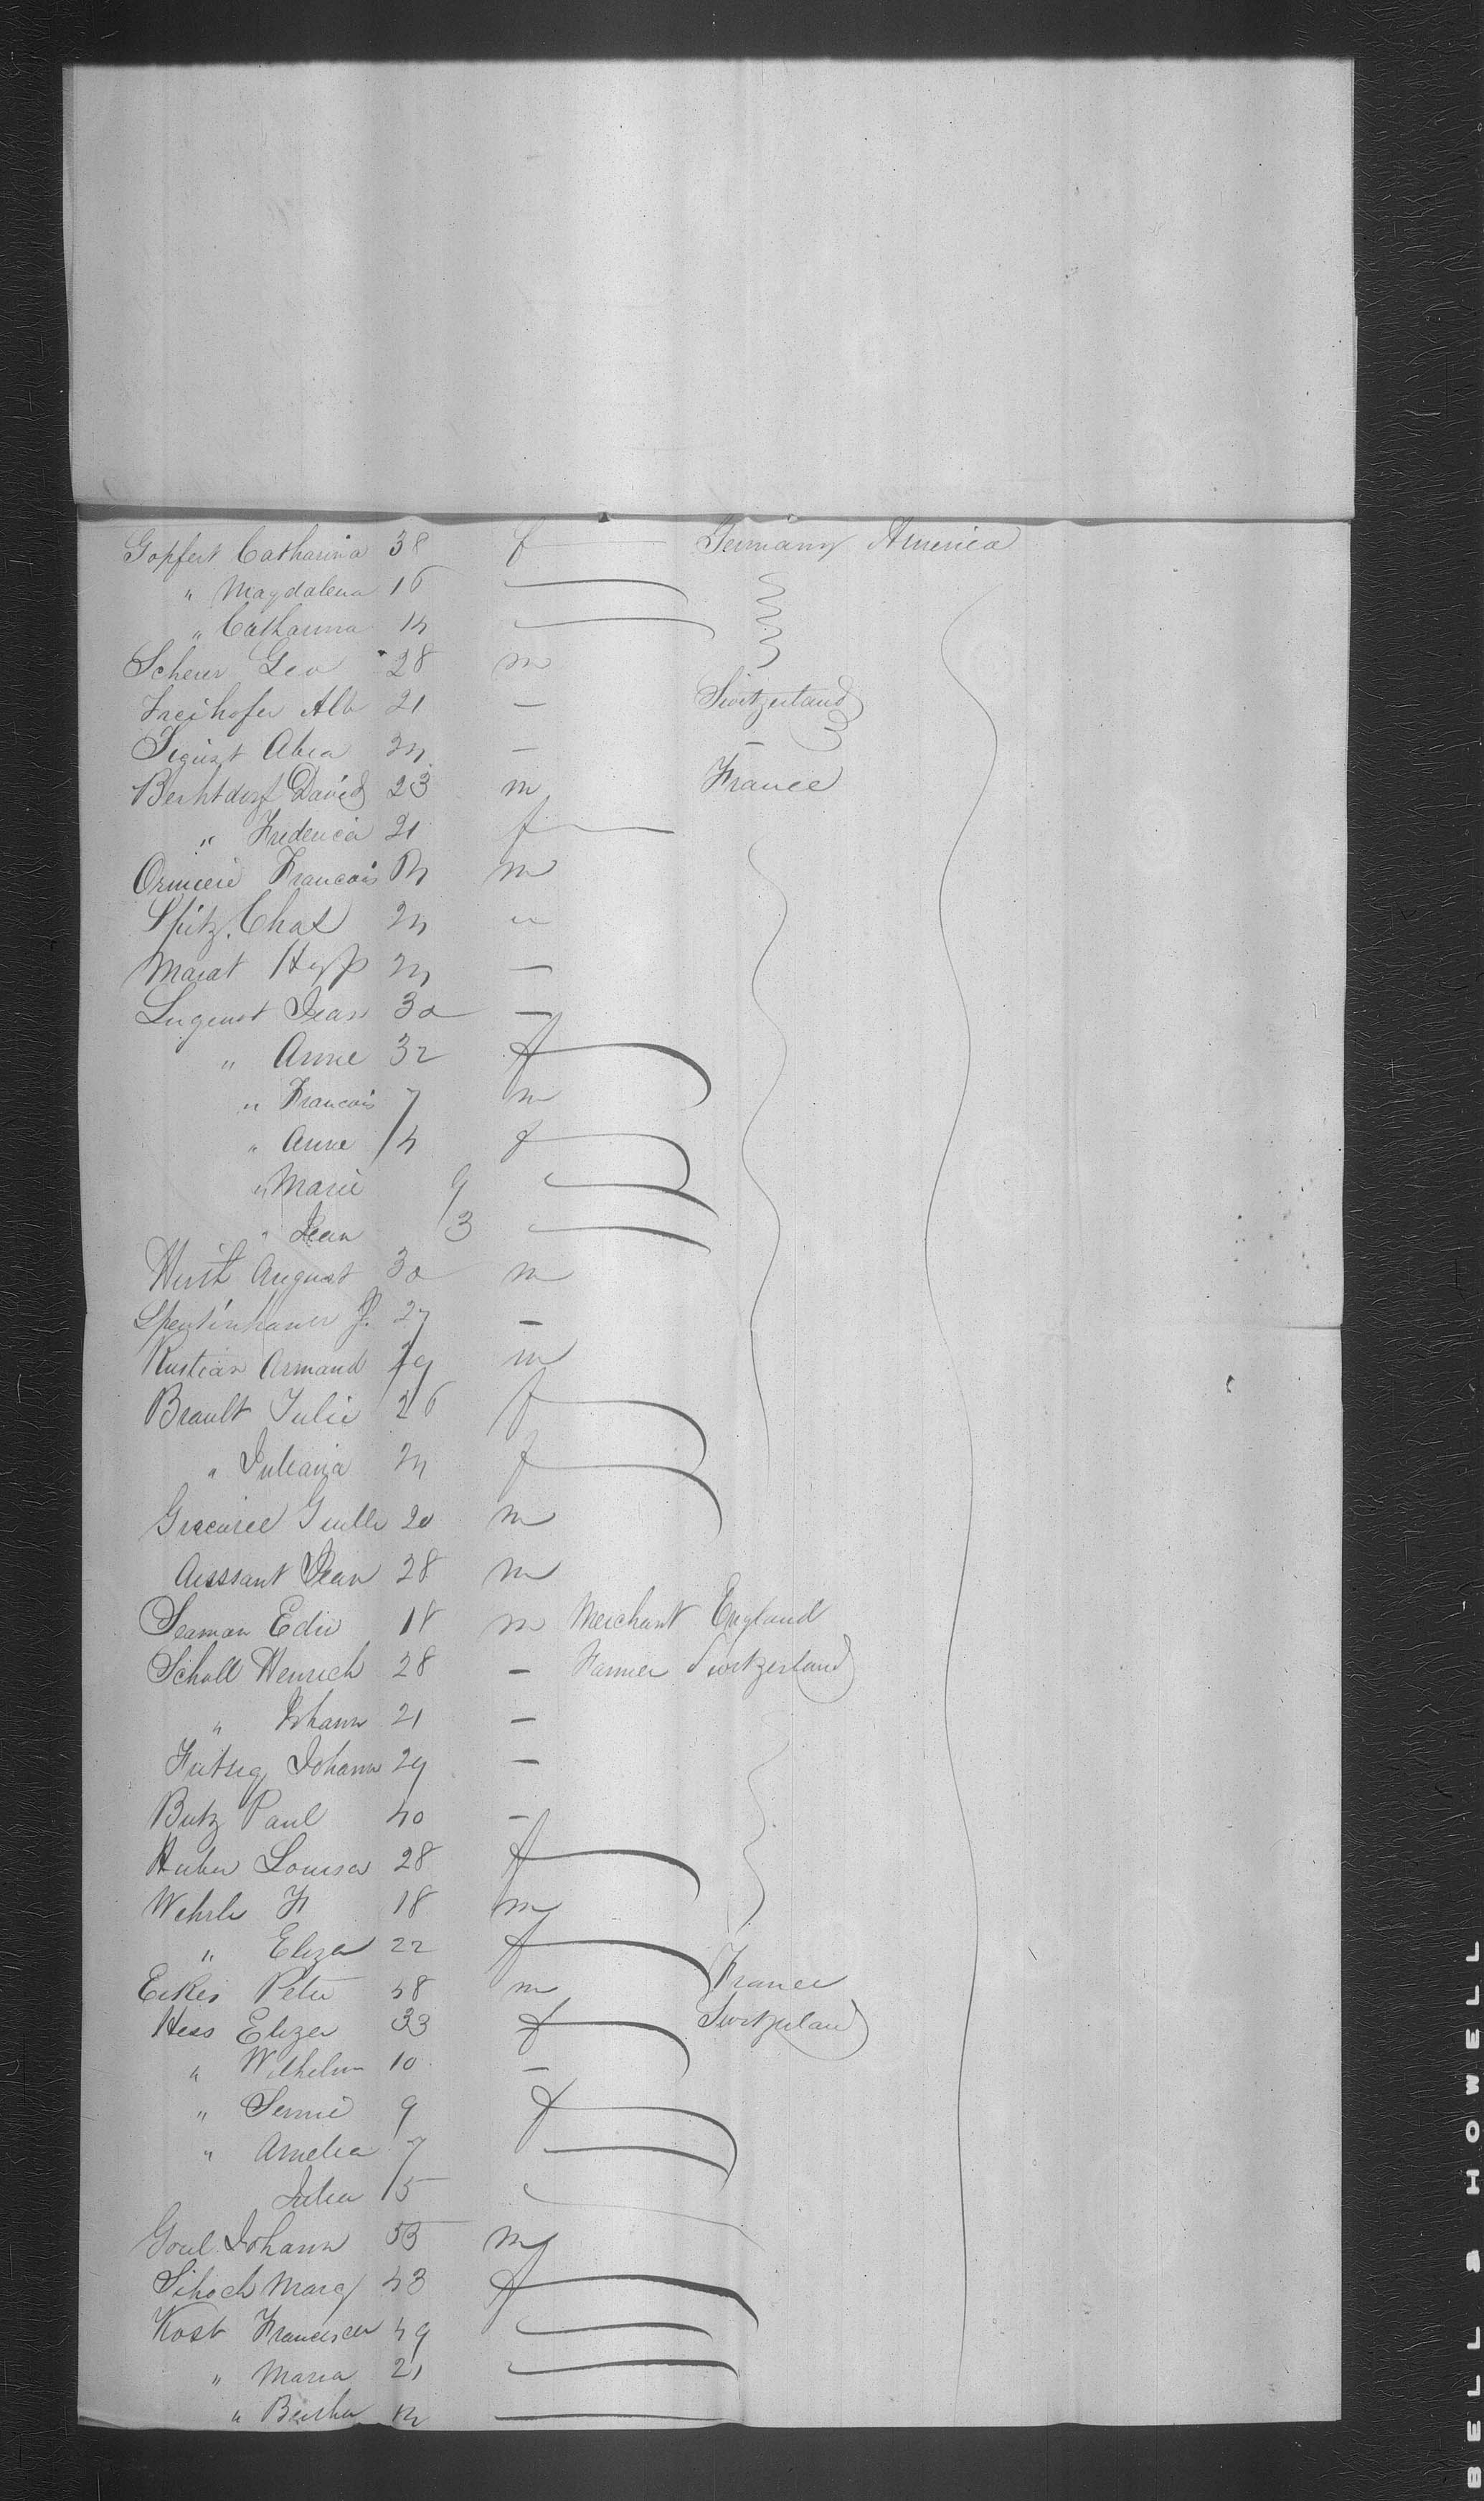 Gopfert Catharina 38 f Germany America
" Magdalena 16
" Catharina 14
Scherer Geo 28 m
Freihofer Alb 21 — Switzerland
Sigrist 24 — —
Berhtdorf David 23 m France
" Frederica 21 f
Francois m
Spitz Chas 24 "
Marat Hyp 24 —
Lugenot Jean 30 —
" Anne 32 f
" Francois 7 m
" Anne 4 f
" Marie 9
" Jean 3
Hirth August 30 m
27 —
Rustian Armand 29 m
Brault Julie 26 f
" Juliana 24 f
20 m
Aussant Jean 28 m
Seaman Edw 18 m Merchant England
Scholl Henrich 28 — Farmer Switzerland
" Johann 21 —
Johann 29 —
Butz Paul 40 —
Huber Louisa 28 f
Wehrle Fr 18 m
" Eliza 22 f
Peter 48 m France
Hess Eliza 33 f Switzerland
" Wilhelm 10 —
" 9 f
" Amelia 7
Julia 5
Johann 53 m
Schoch Marg 43 f
Kost Francisca 49
" Maria 21
" Bertha
BELL & HOWELL